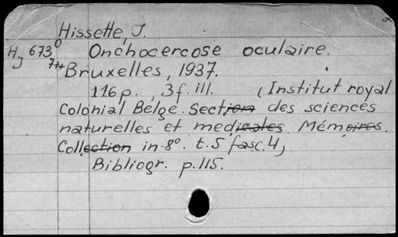 Hissette, J.
H 673° Onchocercose oculaire.
J 744 Bruxelles, 1937.
116 p., 3 f. ill. (Institut royal
Colonial Belge. Section des sciences
naturelles et medicales. Mémoires.
Collection in-8°. t. 5 fasc. 4,
Bibliogr. p. 115.